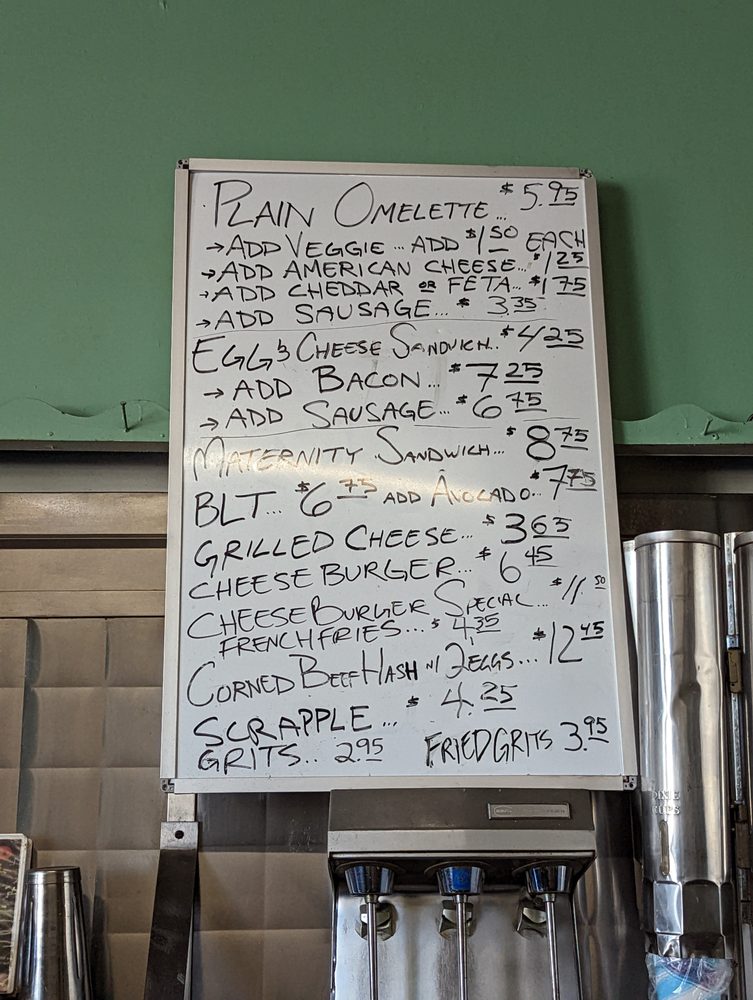 PLAIN OMELETTE... $5.95
→ADD VEGGIE... ADD $1.50 EACH
→ADD AMERICAN CHEESE... $1.25
→ADD CHEDDAR OR FETA... $1.75
→ADD SAUSAGE... $3.35
EGG & CHEESE SANDWICH... $4.25
→ADD BACON... $7.25
→ADD SAUSAGE... $6.75
MATERNITY SANDWICH... $8.75
BLT... $6.75 ADD AVOCADO... $7.75
GRILLED CHEESE... $3.65
CHEESE BURGER... $6.45
CHEESE BURGER SPECIAL... $11.50
FRENCH FRIES... $4.35
CORNED BEEF HASH W/ 2 EGGS... $12.45
SCRAPPLE... $4.25
GRITS.. 2.95 FRIED GRITS 3.95
DIXIE
CUPS